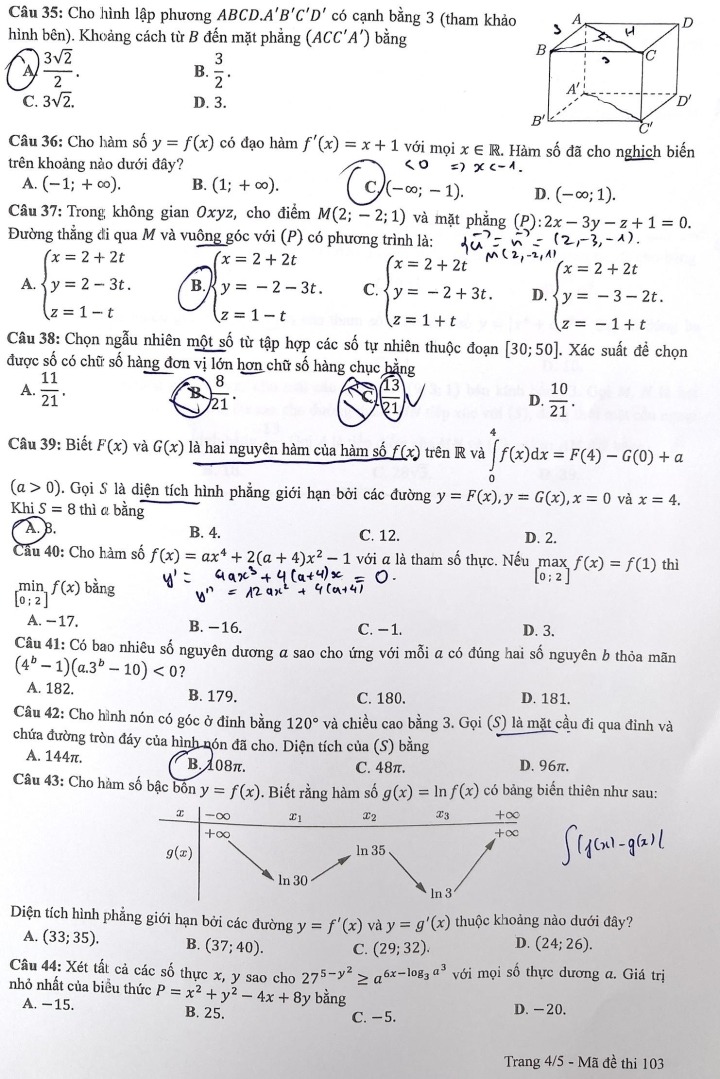 Câu 35: Cho hình lập phương ABCD.A'B'C'D' có cạnh bằng 3 (tham khảo
hình bên). Khoảng cách từ B đến mặt phẳng (ACC'A') bằng
A. 3√2/2.
B. 3/2.
C. 3√2.
D. 3.
A
D
B
C
A'
D'
B'
C'
3
H
3
Câu 36: Cho hàm số y = f(x) có đạo hàm f'(x) = x + 1 với mọi x ∈ ℝ. Hàm số đã cho nghịch biến
trên khoảng nào dưới đây?
<0 => x < -1.
A. (−1; +∞).
B. (1; +∞).
C. (−∞; −1).
D. (−∞; 1).
Câu 37: Trong không gian Oxyz, cho điểm M(2; −2; 1) và mặt phẳng (P): 2x − 3y − z + 1 = 0.
Đường thẳng đi qua M và vuông góc với (P) có phương trình là:
u = n = (2,-3,-1).
M(2,-2,1)
A. { x = 2 + 2t
y = 2 − 3t.
z = 1 − t
B. { x = 2 + 2t
y = −2 − 3t.
z = 1 − t
C. { x = 2 + 2t
y = −2 + 3t.
z = 1 + t
D. { x = 2 + 2t
y = −3 − 2t.
z = −1 + t
Câu 38: Chọn ngẫu nhiên một số từ tập hợp các số tự nhiên thuộc đoạn [30; 50]. Xác suất để chọn
được số có chữ số hàng đơn vị lớn hơn chữ số hàng chục bằng
A. 11/21.
B. 8/21.
C. 13/21
D. 10/21.
Câu 39: Biết F(x) và G(x) là hai nguyên hàm của hàm số f(x) trên ℝ và ∫₀⁴ f(x)dx = F(4) − G(0) + a
(a > 0). Gọi S là diện tích hình phẳng giới hạn bởi các đường y = F(x), y = G(x), x = 0 và x = 4.
Khi S = 8 thì a bằng
A. 8.
B. 4.
C. 12.
D. 2.
Câu 40: Cho hàm số f(x) = ax⁴ + 2(a + 4)x² − 1 với a là tham số thực. Nếu max[0;2] f(x) = f(1) thì
y' = 4ax³ + 4(a+4)x = 0.
min[0;2] f(x) bằng
y'' = 12ax² + 4(a+4)
A. −17.
B. −16.
C. −1.
D. 3.
Câu 41: Có bao nhiêu số nguyên dương a sao cho ứng với mỗi a có đúng hai số nguyên b thỏa mãn
(4ᵇ − 1)(a.3ᵇ − 10) < 0?
A. 182.
B. 179.
C. 180.
D. 181.
Câu 42: Cho hình nón có góc ở đỉnh bằng 120° và chiều cao bằng 3. Gọi (S) là mặt cầu đi qua đỉnh và
chứa đường tròn đáy của hình nón đã cho. Diện tích của (S) bằng
A. 144π.
B. 108π.
C. 48π.
D. 96π.
Câu 43: Cho hàm số bậc bốn y = f(x). Biết rằng hàm số g(x) = ln f(x) có bảng biến thiên như sau:
x −∞ x₁ x₂ x₃ +∞
+∞ +∞
g(x) ln 35
ln 30
ln 3
∫|f(x)-g(x)|
Diện tích hình phẳng giới hạn bởi các đường y = f'(x) và y = g'(x) thuộc khoảng nào dưới đây?
A. (33; 35).
B. (37; 40).
C. (29; 32).
D. (24; 26).
Câu 44: Xét tất cả các số thực x, y sao cho 27^(5−y²) ≥ a^(6x−log₃ a³) với mọi số thực dương a. Giá trị
nhỏ nhất của biểu thức P = x² + y² − 4x + 8y bằng
A. −15.
B. 25.
C. −5.
D. −20.
Trang 4/5 - Mã đề thi 103